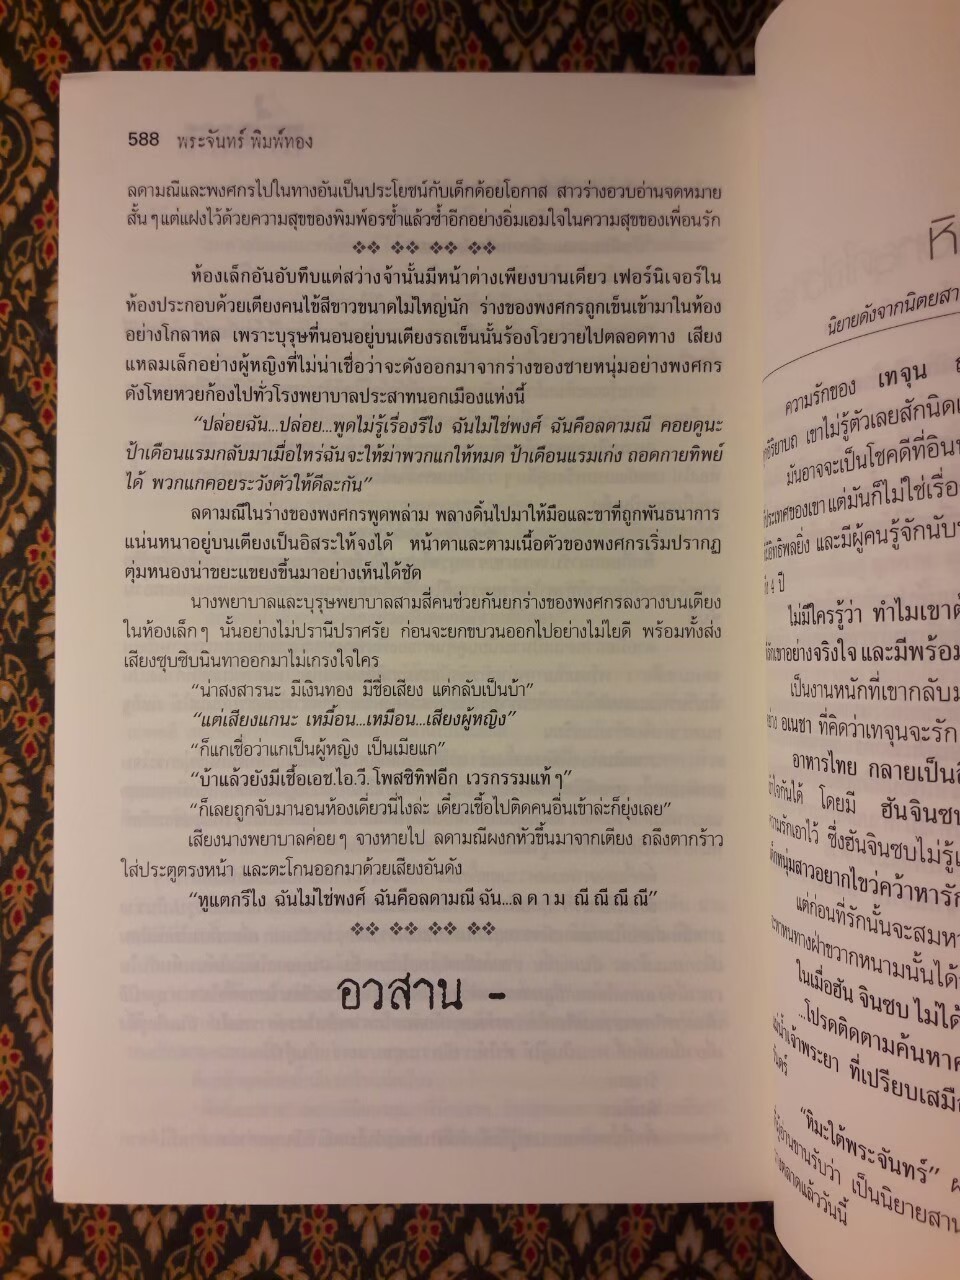 588 พระจันทร์ พิมพ์ทอง
ลดามณีและพงศกรไปในทางอันเป็นประโยชน์กับเด็กด้อยโอกาส สาวร่างอวบอ่านจดหมาย
สั้นๆ แต่แฝงไว้ด้วยความสุขของพิมพ์อรซ้ำแล้วซ้ำอีกอย่างอิ่มเอมใจในความสุขของเพื่อนรัก
ห้องเล็กอันอับทึบแต่สว่างจ้านั้นมีหน้าต่างเพียงบานเดียว เฟอร์นิเจอร์ใน
ห้องประกอบด้วยเตียงคนไข้สีขาวขนาดไม่ใหญ่นัก ร่างของพงศกรถูกเข็นเข้ามาในห้อง
อย่างโกลาหล เพราะบุรุษที่นอนอยู่บนเตียงรถเข็นนั้นร้องโวยวายไปตลอดทาง เสียง
แหลมเล็กอย่างผู้หญิงที่ไม่น่าเชื่อว่าจะดังออกมาจากร่างของชายหนุ่มอย่างพงศกร
ดังโหยหวยก้องไปทั่วโรงพยาบาลประสาทนอกเมืองแห่งนี้
“ปล่อยฉัน...ปล่อย...พูดไม่รู้เรื่องรึไง ฉันไม่ใช่พงศ์ ฉันคือลดามณี คอยดูนะ
ป้าเดือนแรมกลับมาเมื่อไหร่ฉันจะให้ฆ่าพวกแกให้หมด ป้าเดือนแรมเก่ง ถอดกายทิพย์
ได้ พวกแกคอยระวังตัวให้ดีละกัน”
ลดามณีในร่างของพงศกรพูดพล่าม พลางดิ้นไปมาให้มือและขาที่ถูกพันธนาการ
แน่นหนาอยู่บนเตียงเป็นอิสระให้จงได้ หน้าตาและตามเนื้อตัวของพงศกรเริ่มปรากฏ
ตุ่มหนองน่าขยะแขยงขึ้นมาอย่างเห็นได้ชัด
นางพยาบาลและบุรุษพยาบาลสามสี่คนช่วยกันยกร่างของพงศกรลงวางบนเตียง
ในห้องเล็กๆ นั้นอย่างไม่ปรานีปราศรัย ก่อนจะยกขบวนออกไปอย่างไม่ไยดี พร้อมทั้งส่ง
เสียงซุบซิบนินทาออกมาไม่เกรงใจใคร
“น่าสงสารนะ มีเงินทอง มีชื่อเสียง แต่กลับเป็นบ้า”
“แต่เสียงแกนะ เหมื้อน...เหมือน...เสียงผู้หญิง”
“ก็แกเชื่อว่าแกเป็นผู้หญิง เป็นเมียแก”
“บ้าแล้วยังมีเชื้อเอช.ไอ.วี. โพสซิทิฟอีก เวรกรรมแท้ๆ”
“ก็เลยถูกจับมานอนห้องเดี่ยวนี่ไงล่ะ เดี๋ยวเชื้อไปติดคนอื่นเข้าล่ะก็ยุ่งเลย”
เสียงนางพยาบาลค่อยๆ จางหายไป ลดามณีผงกหัวขึ้นมาจากเตียง ถลึงตากร้าว
ใส่ประตูตรงหน้า และตะโกนออกมาด้วยเสียงอันดัง
“หูแตกรึไง ฉันไม่ใช่พงศ์ ฉันคือลดามณี ฉัน...ล ด า ม ณี ณี ณี ณี”
อวสาน -
นิยายดังจากนิตยสา
ความรักของ เทจุน
เขาไม่รู้ตัวเลยสักนิด
มันอาจจะเป็นโชคดีที่อิน
ประเทศของเขา แต่มันก็ไม่ใช่เรื่อ
อิทธิพลยิ่ง และมีผู้คนรู้จักนับ
4 ปี
ไม่มีใครรู้ว่า ทำไมเขาต้
เขาอย่างจริงใจ และมีพร้อม
เป็นงานหนักที่เขากลับม
อเนชา ที่คิดว่าเทจุนจะรัก
อาหารไทย กลายเป็นสื
โดยมี ฮันจินซบ
ความรักเอาไว้ ซึ่งฮันจินซบไม่รู้
หนุ่มสาวอยากไขว่คว้าหารัก
แต่ก่อนที่รักนั้นจะสมห
หนทางฝ่าขวากหนามนั้นได้
ในเมื่อฮัน จินซบ ไม่ได้
...โปรดติดตามค้นหาค
แม่น้ำเจ้าพระยา ที่เปรียบเสมือ
“หิมะใต้พระจันทร์” ผ
ผู้อ่านขานรับว่า เป็นนิยายสาน
วางตลาดแล้ววันนี้